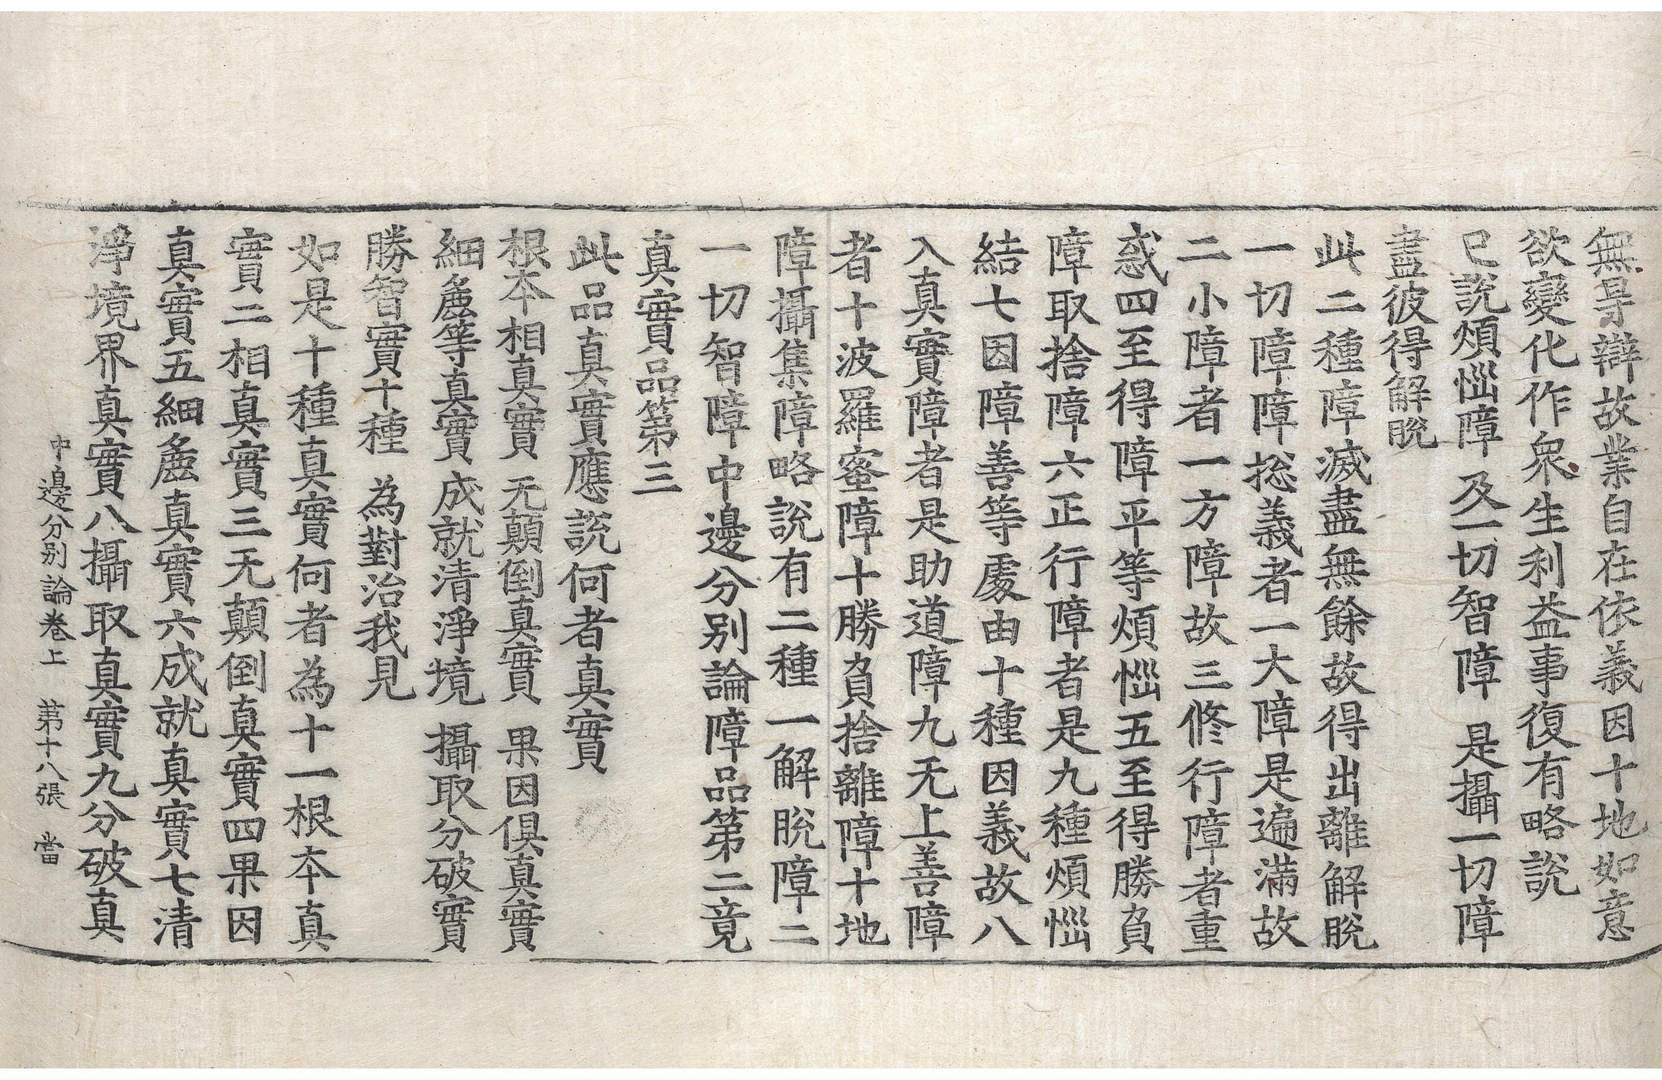 無㝵辯故業自在依義因十地如意
欲變化作衆生利益事復有略說
已說煩惱障 及一切智障 是攝一切障
盡彼得解脫
此二種障滅盡無餘故得出離解脫
一切障障捴義者一大障是遍滿故
二小障者一方障故三修行障者重
惑四至得障平等煩惱五至得勝負
障取捨障六正行障者是九種煩惱
結七因障善等處由十種因義故八
入真實障者是助道障九无上善障
者十波羅蜜障十勝負捨離障十地
障攝集障略說有二種一解脫障二
一切智障中邊分別論障品第二竟
真實品第三
此品真實應說何者真實
根本相真實 无顛倒真實 果因俱真實
細麁等真實成就清淨境 攝取分破實
勝智實十種 為對治我見
如是十種真實何者為十一根本真
實二相真實三无顛倒真實四果因
真實五細麁真實六成就真實七清
淨境界真實八攝取真實九分破真
中邊分別論卷上 第十八張 當